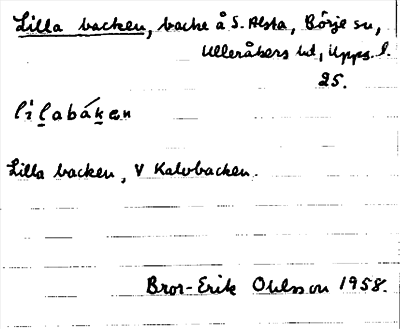 Lilla backen, backe å S. Alsta, Börje sn,
Ulleråkers hd, Upps. l.
25.
lilabáken
Lilla backen, V Kalvbacken.
Bror-Erik Ohlsson 1958.